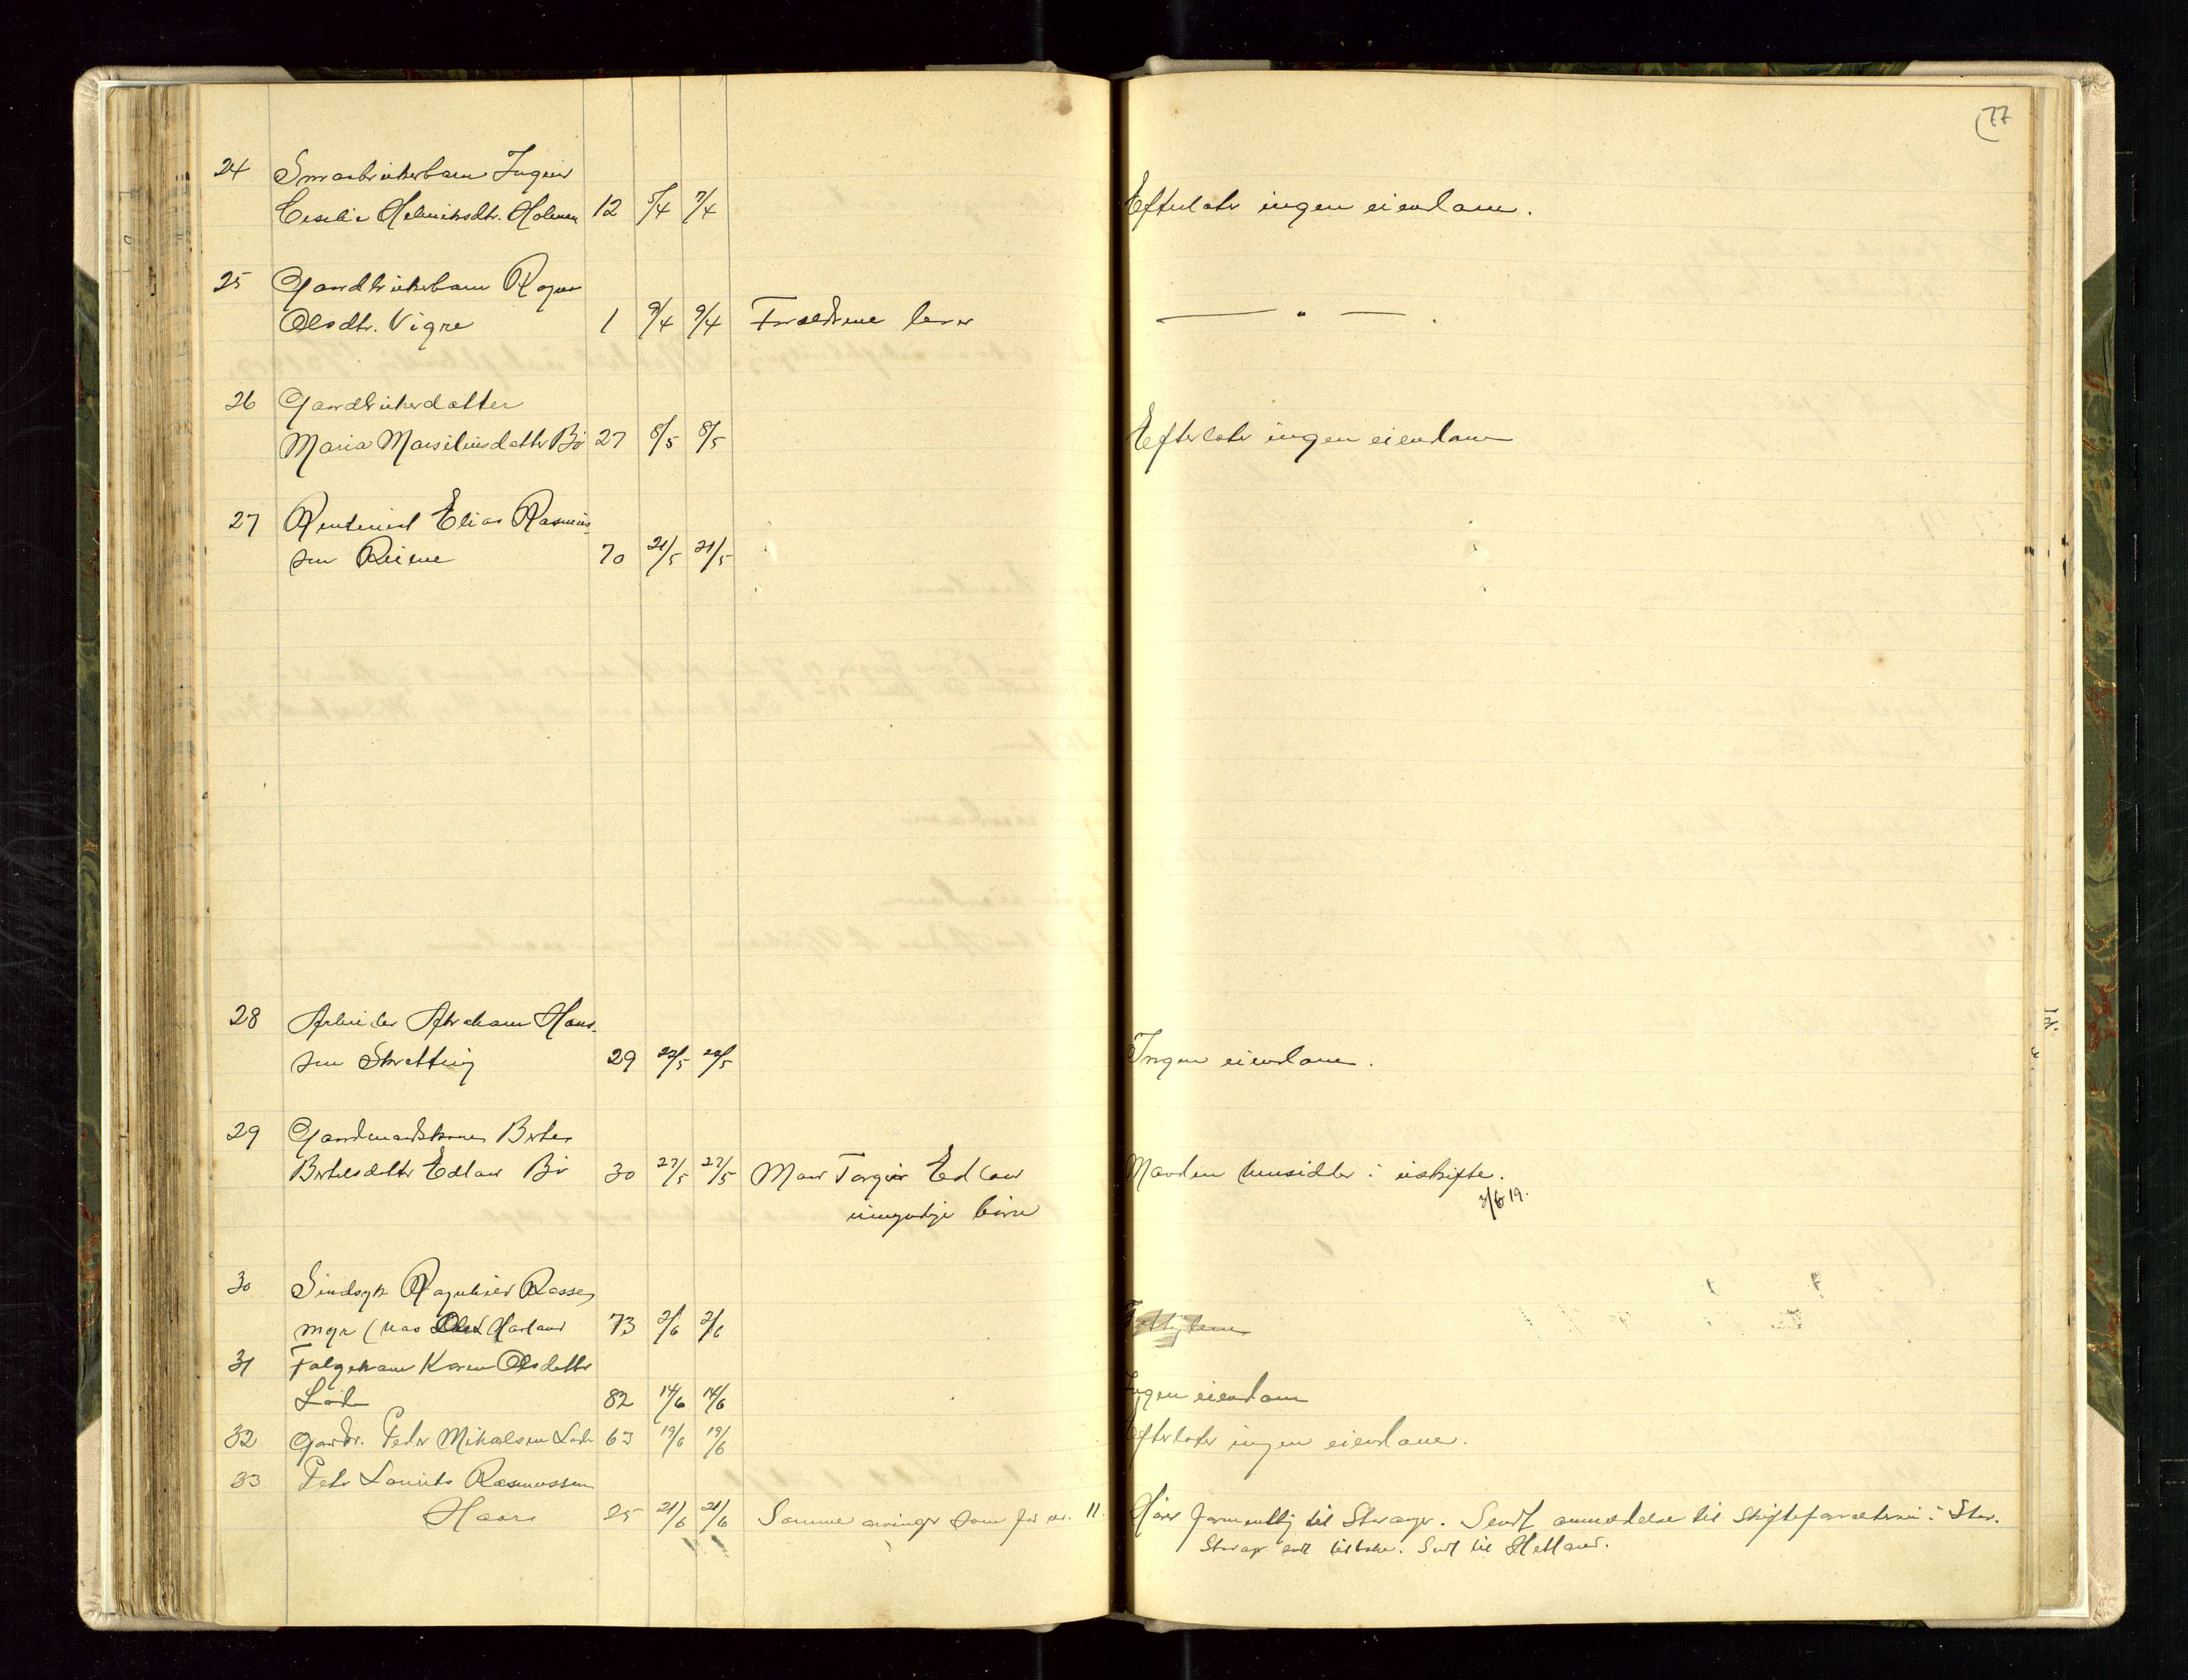 77
24 Smaabrukerbarn Inger
Cecilie Helmiksdtr. Holmen 12 5/4 7/4 Efterlater ingen eiendom.
25 Gaardbrukerbarn Ragna
Olsdtr. Vigre 1 9/4 9/4 Forældrene lever — " —.
26 Gaardbrukerdatter
Maria Marsiliusdatter Bø 27 8/5 8/5 Efterlater ingen eiendom
27 Rentenist Elias Rasmus-
sen Reime 70 21/5 21/5
28 Arbeider Abraham Hans-
sen Skretting 29 22/5 22/5 Ingen eiendom.
29 Gaardmandskone Berta
Bertelsdatter Edland Bø 30 27/5 27/5 Man Torger Edland Manden hensidder i uskifte.
umyndige børn 3/6 19.
30 Sindsyk Ragnhild Rasses
myr (hos Harland 73 2/6 2/6
31 Folgekone Karen Olsdatter
Lode 82 14/6 14/6 Ingen eiendom
32 Gaardbr. Peder Mikalsen Lode 63 19/6 19/6 Efterlater ingen eiendom.
33 Peter Laurits Rasmussen
Haar 25 21/6 21/6 Samme arvinger som før nr. 11. Hører formentlig til Stavanger. Sendt anmeldelse til Skifteforvalteren i Stav.
Stavanger sendt tilbake. Sendt til Hetland.